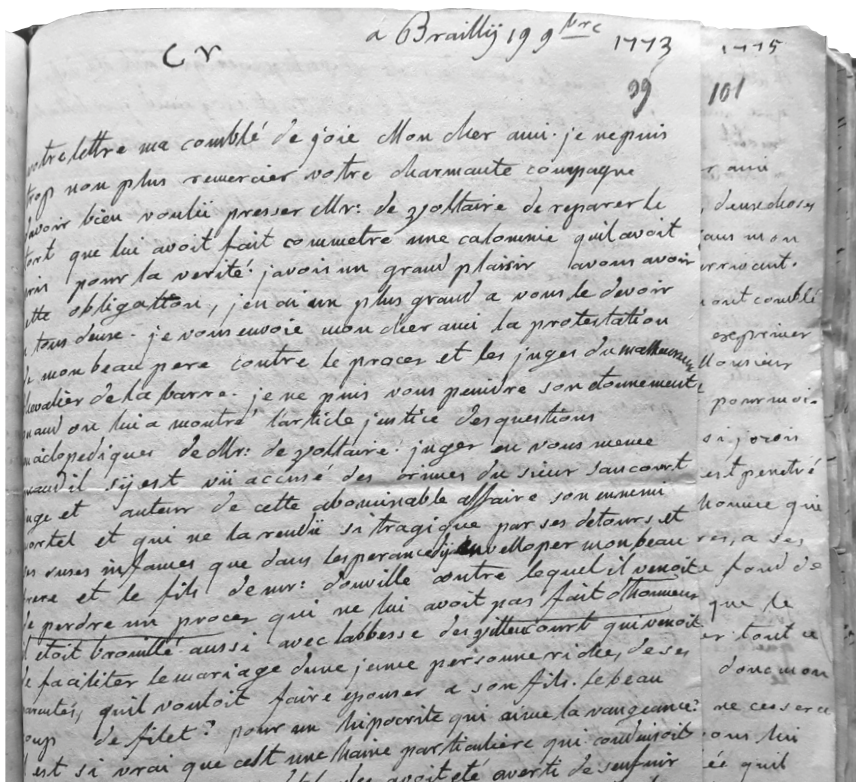 à Brailly 19 9bre 1773
CV
99
votre lettre ma comblé de joie Mon cher ami. je ne puis
trop non plus remercier votre charmante compagne
davoir bien voulü presser Mr: de zvoltaire de reparer le
tort que lui avoit fait commetre une calomnie quil avoit
pour la verité. javois un grand plaisir avous avoir
cette obligation, jen ai un plus grand a vous le devoir
a tous deuse. je vous envoie mon cher ami la protestation
de mon beau pere contre le proces et les juges du malheureux
chevalier de la barre. je ne puis vous peindre son etonnement
quand on lui a montré larticle justice des questions
enciclopediques de Mr: de zvoltaire. juger en vous meme
quand il sÿ est vü accusé des crimes du sieur saucourt
juge et auteur de cette abominable affaire son ennemi
mortel et qui ne la rendü si tragique par ses detours et
ses ruses infames que dans lesperance dÿ envelloper mon beau
frere et le fils de mr: douville contre lequel il venoit
de perdre un proces qui ne lui avoit pas fait dhonneur
il etoit brouillé aussi avec labbesse de villencourt qui venoit
de faciliter le mariage dune jeune personne riche, de ses
parentes, quil vouloit faire epouser a son fils. le beau
coup de filet? pour un hipocrite qui aime la vangeance?
il est si vrai que cest une haine particuliere qui conduisoit
avoit été averti de senfuir
1775
101
r ami
deuse chose
dans mon
arrivant.
mont comblé
exprimer
Monsieur
pour moi.
si jozois
est penetré
homme qui
res, a ses
e fond de
que le
er tout ce
donc mon
ne cessera
ons lui
ée quil